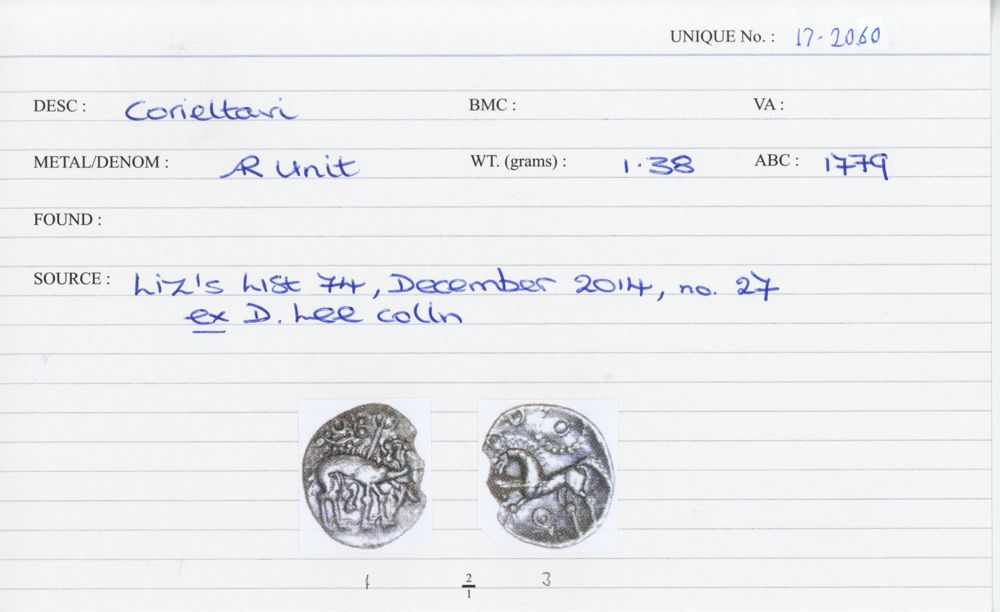 UNIQUE No. : 17-2060
DESC : Corieltavi BMC : VA :
METAL/DENOM : AR Unit WT. (grams) : 1.38 ABC : 1779
FOUND :
SOURCE : Liz's List 74, December 2014, no. 27
ex D. Lee colln
1 2/1 3